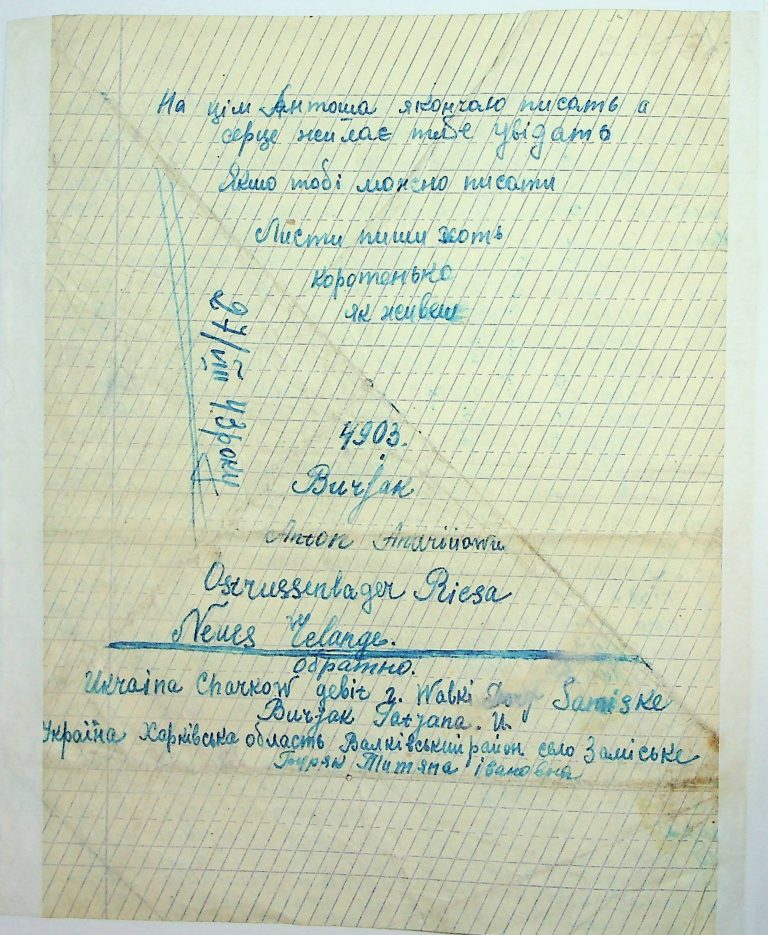 На цім Антоша якончаю писать а
серце жилає тебе увідать
Якшо тобіможно писати
Листи пиши хоть
коротенько
як живеш
27/VIII 43 року
4903.
Burjak
Anton Andriiiowu
Ostrussenlager Riesa
Neues
обратно.
Ukraina Charkow gebit g. Walki Dorf Samiske
Burjak Tatjana. U.
Україна Харківська область Валківський район село Заміське
Буряк Титяна івановна